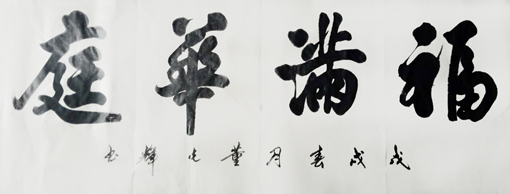 福满華庭
戊戌春月董輝书